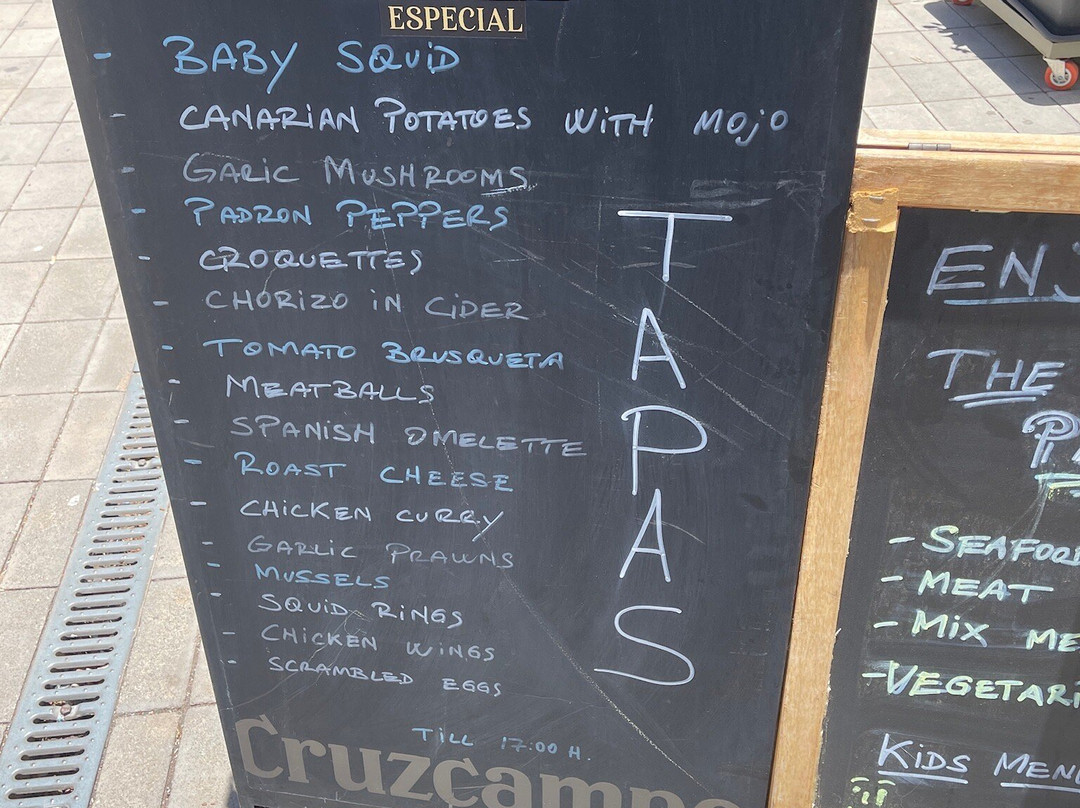 ESPECIAL
- BABY SQUID
- CANARIAN POTATOES WITH MOJO
- GARLIC MUSHROOMS
- PADRON PEPPERS
- CROQUETTES
- CHORIZO IN CIDER
- TOMATO BRUSQUETA
- MEATBALLS
- SPANISH OMELETTE
- ROAST CHEESE
- CHICKEN CURRY
- GARLIC PRAWNS
- MUSSELS
- SQUID RINGS
- CHICKEN WINGS
- SCRAMBLED EGGS
TILL 17:00 H.
Cruzcampo
TAPAS
ENJ
THE
- SEAFOOD
- MEAT
- MIX ME
- VEGETARI
KIDS MEN